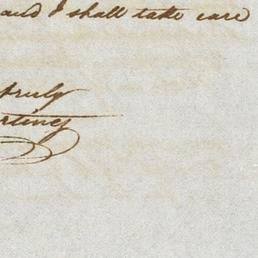 and I shall take care
truly